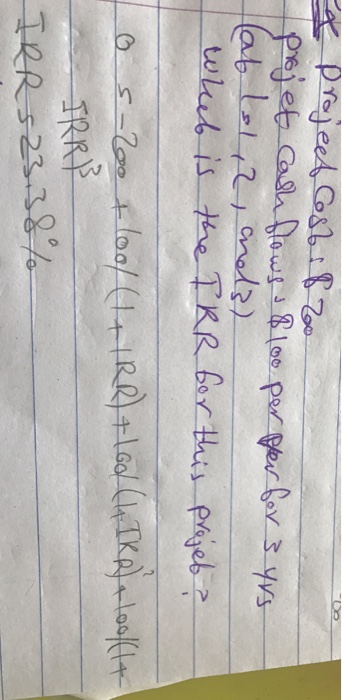 * Project Cost: $200
Project Cash flows = $100 per year for 3 yrs
(at t=1, 2, and 3)
What is the IRR for this project?
0 = -200 + 100/(1+IRR) + 100/(1+IRR)² + 100/(1+
IRR)³
IRR = 23.38%